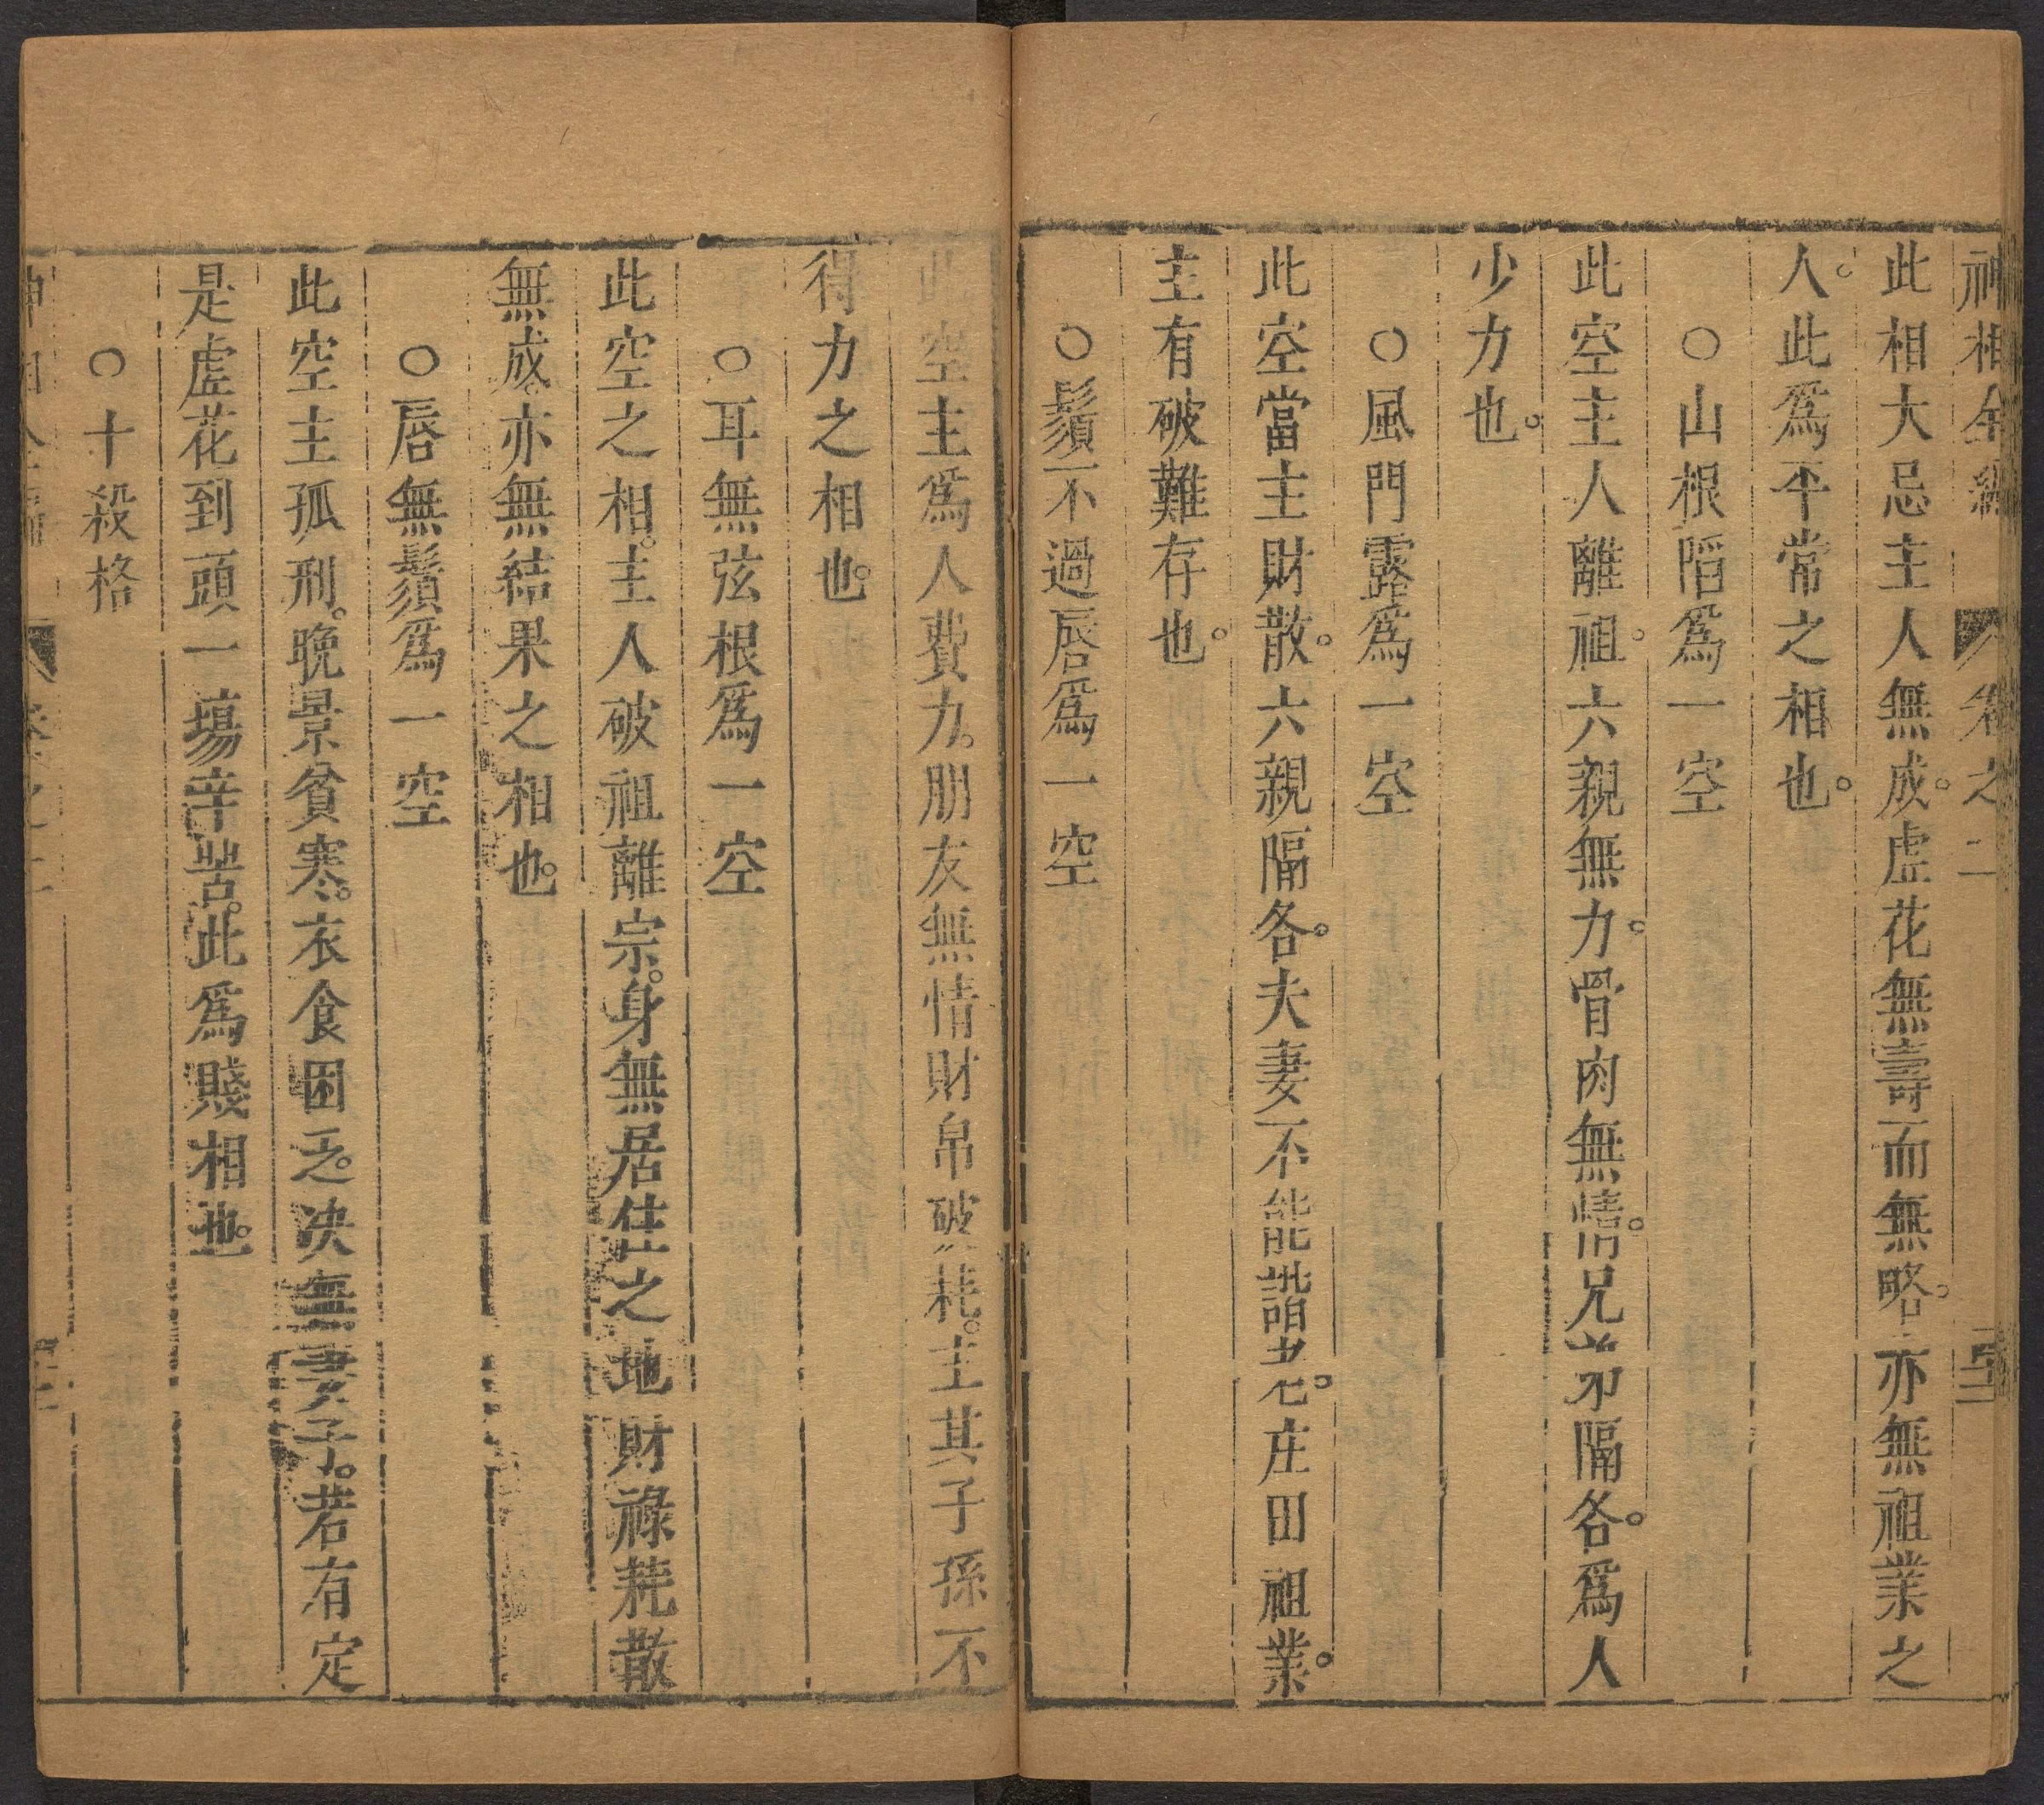 神相全編 卷之二
此相大忌主人無成。虛花無壽而無略。亦無祖業之
人。此爲平常之相也。
○山根陷爲一空
此空主人離祖。六親無力。骨肉無情。兄弟隔各。爲人
少力也。
○風門露爲一空
此空當主財散。六親隔各。夫妻不能諧老。庄田祖業。
主有破難存也。
○鬚不過唇爲一空
此空主爲人費力。朋友無情財帛破耗。主其子孫不
得力之相也。
○耳無弦根爲一空
此空之相。主人破祖離宗。身無居住之地財祿耗散
無成。亦無結果之相也。
○唇無鬚爲一空
此空主孤刑。晚景貧寒。衣食困乏。决無妻子。若有定
是虛花到頭一塲辛苦。此爲賤相也。
○十殺格